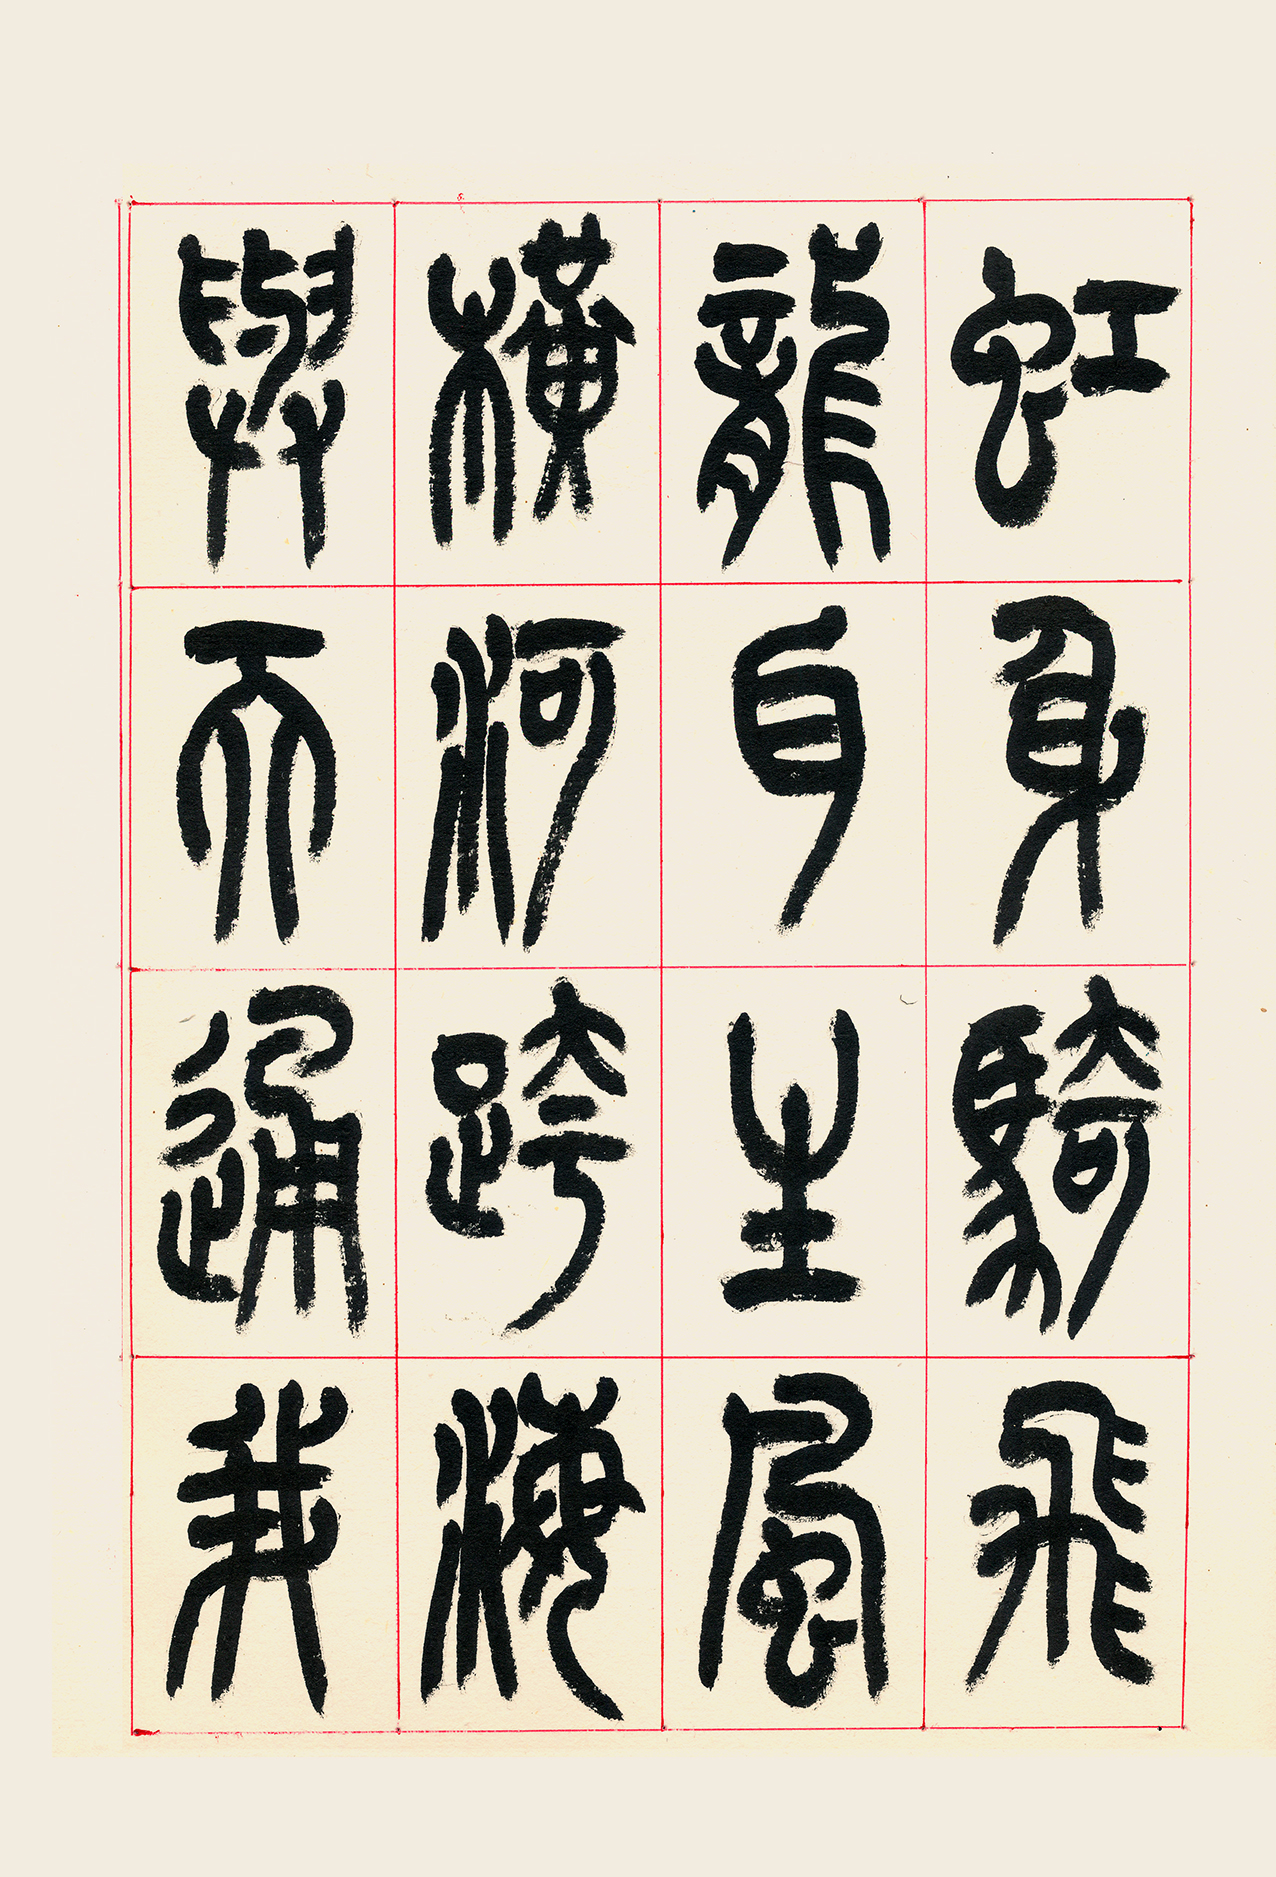 虹身騎飛
龍耳生風
橫河跨海
與天通我